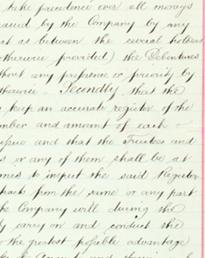 take precedence over all moneys
by the Company by any
as between the several holders
otherwise provided) the Debentures
without any preference or priority by
otherwise. Secondly, that the
keep an accurate register of the
number and amount of each
issue and that the Trustees and
or any of them shall be at
times to inspect the said Register
from the same or any part
the Company will during the
carry on and conduct the
the greatest possible advantage